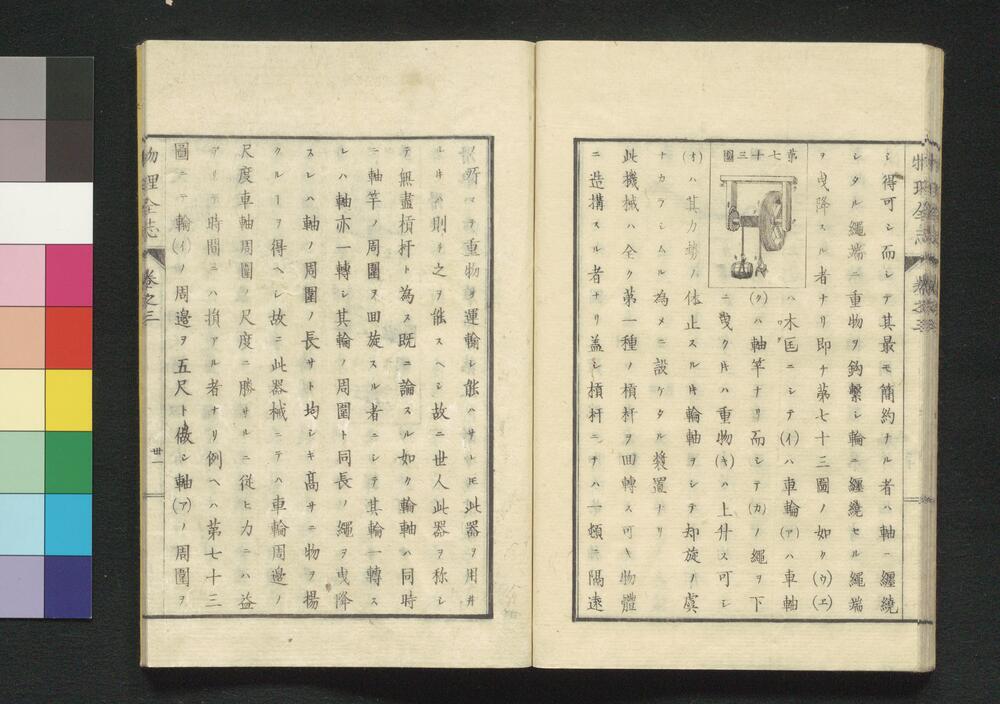 シ得可シ而シテ其最モ簡約ナル者ハ軸ニ纒繞
シタル繩端ニ重物ヲ鈎繫シ輪ニ纒繞セル繩端
ヲ曳降スル者ナリ即チ第七十三圖ノ如ク(ウ)(エ)
第七十三圖
ハ木匡ニシテ(イ)ハ車輪(ア)ハ車軸
(ク)ハ軸竿ナリ而シテ(カ)ノ繩ヲ下
ニ曳ク片ハ重物(キ)ハ上升ス可シ
(オ)ハ其力勢ノ休止スル片輪軸ヲシテ却旋ノ虞
ナカラシムル為メニ設ケタル裝置ナリ
此機械ハ全ク第一種ノ槓杆ヲ回轉ス可キ物體
ニ造搆スル者ナリ蓋シ槓杆ニテハ一頓ニ隔遠
ノ所マテ重物ヲ運輸シ能ハサレ𪜈此器ヲ用井
ル片ハ則チ之ヲ能スヘシ故ニ世人此器ヲ称シ
テ無盡槓杆ト為ス既ニ論スル如ク輪軸ハ同時
ニ軸竿ノ周圍ヲ回旋スル者ニシテ其輪一轉ス
レハ軸亦一轉シ其輪ノ周圍ト同長ノ繩ヲ曳降
スレハ軸ノ周圍ノ長サト均シキ髙サニ物ヲ揚
クルヿヲ得ヘシ故ニ此器械ニテハ車輪周邊ノ
尺度車軸周圍ノ尺度ニ勝サルニ從ヒ力ニハ益
アリテ時間ニハ損アル者ナリ例ヘハ第七十三
圖ニテ輪(イ)ノ周邊ヲ五尺ト做シ軸(ア)ノ周圍ヲ
物理全志 卷之三
卅一